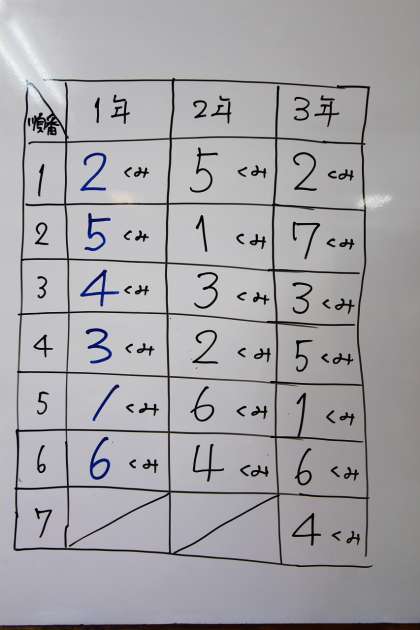 順番 1年 2年 3年
1 2くみ 5くみ 2くみ
2 5くみ 1くみ 7くみ
3 4くみ 3くみ 3くみ
4 3くみ 2くみ 5くみ
5 1くみ 6くみ 1くみ
6 6くみ 4くみ 6くみ
7 4くみ